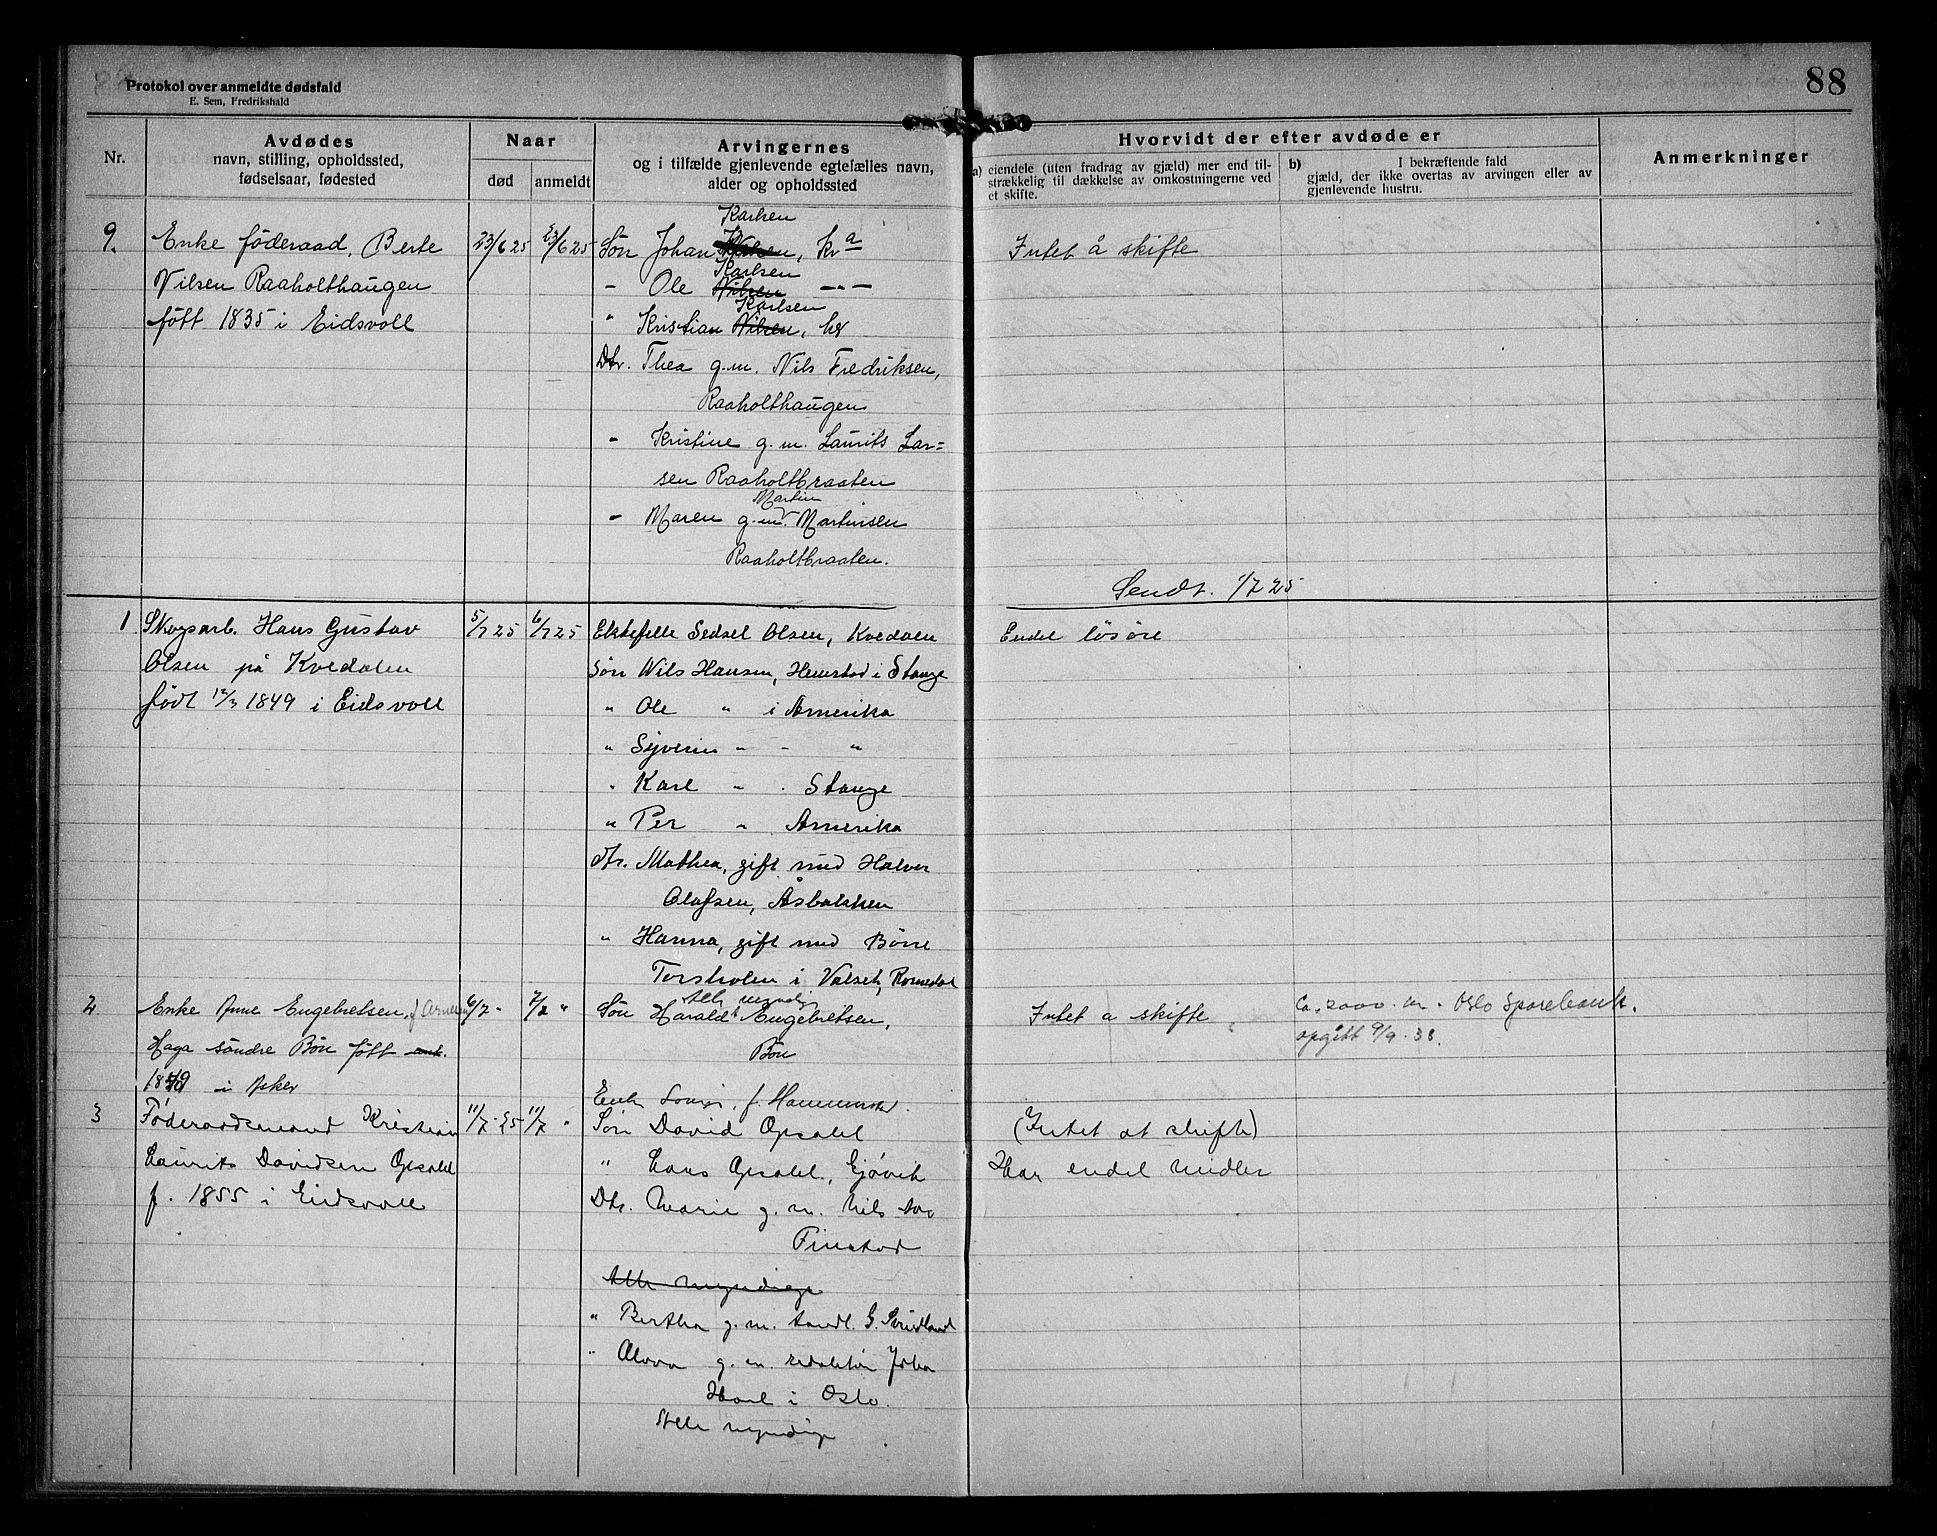 88
Protokol over anmeldte dødsfald
E. Sem, Fredrikshald
Nr.
Avdødes
navn, stilling, opholdssted,
fødselsaar, fødested
Naar
død
anmeldt
Arvingernes
og i tilfælde gjenlevende egtefælles navn,
alder og opholdssted
Hvorvidt der efter avdøde er
a) eiendele (uten fradrag av gjæld) mer end til-
strækkelig til dækkelse av omkostningerne ved
et skifte.
b) I bekræftende fald
gjæld, der ikke overtas av arvingen eller av
gjenlevende hustru.
Anmerkninger
9.
Enke föderaad, Berte
Nilsen Raaholthaugen
født 1835 i Eidsvoll
23/6 25
23/6 25
Karlsen
Søn Johan Nilsen, Kra
Karlsen
- Ole Nilsen -"-
Karlsen
" Kristian Nilsen, her
Dtr. Thea g.m. Nils Fredriksen,
Raaholthaugen
- Kristine g.m. Laurits Lar=
sen Raaholtbraaten
Martin
- Maren g.m. Martinsen
Raaholtbraaten.
Intet å skifte
Sendt. 1/7 25
1
Skogsarb. Hans Gustav
Olsen på Kvedalen
født 12/3 1849 i Eidsvoll
5/7 25
6/7 25
Ektefelle Sedsel Olsen, Kvedalen
Søn Nils Hansen, Hemstad i Stange
" Ole " i Amerika
" Syverin " - "
" Karl " . Stange
" Per " Amerika
Dtr. Mathea, gift med Halvor
Olafsen, Åsbakken
" Hanna, gift med Börre
Torsholen i Valset, Romedal
Endel løsøre
2
Enke Anne Engebretsen, f Arnesen
Haga söndre Bön født ant.
1849 i Asker
6/7 "
7/7 "
Alle myndig
Søn Harald Engebretsen,
Bön
Intet a skifte
Ca. 2000 - i Oslo Sparebank.
opgitt 9/9 - 38.
3
Föderaadsmand Kristian
Laurits Davidsen Opsahl
f. 1855 i Eidsvoll
11/7 - 25
11/7 "
Enke Lovise, f. Hammerstad.
Søn David Opsahl
" Lars Opsahl, Gjøvik
Dtr. Marie g. m. Nils Aas
Finstad
Alle myndige
" Bertha g. m. tandl. G.
" g. m. redaktør Johan
i Oslo.
Alle myndige
(Intet at skifte)
Har endel midler